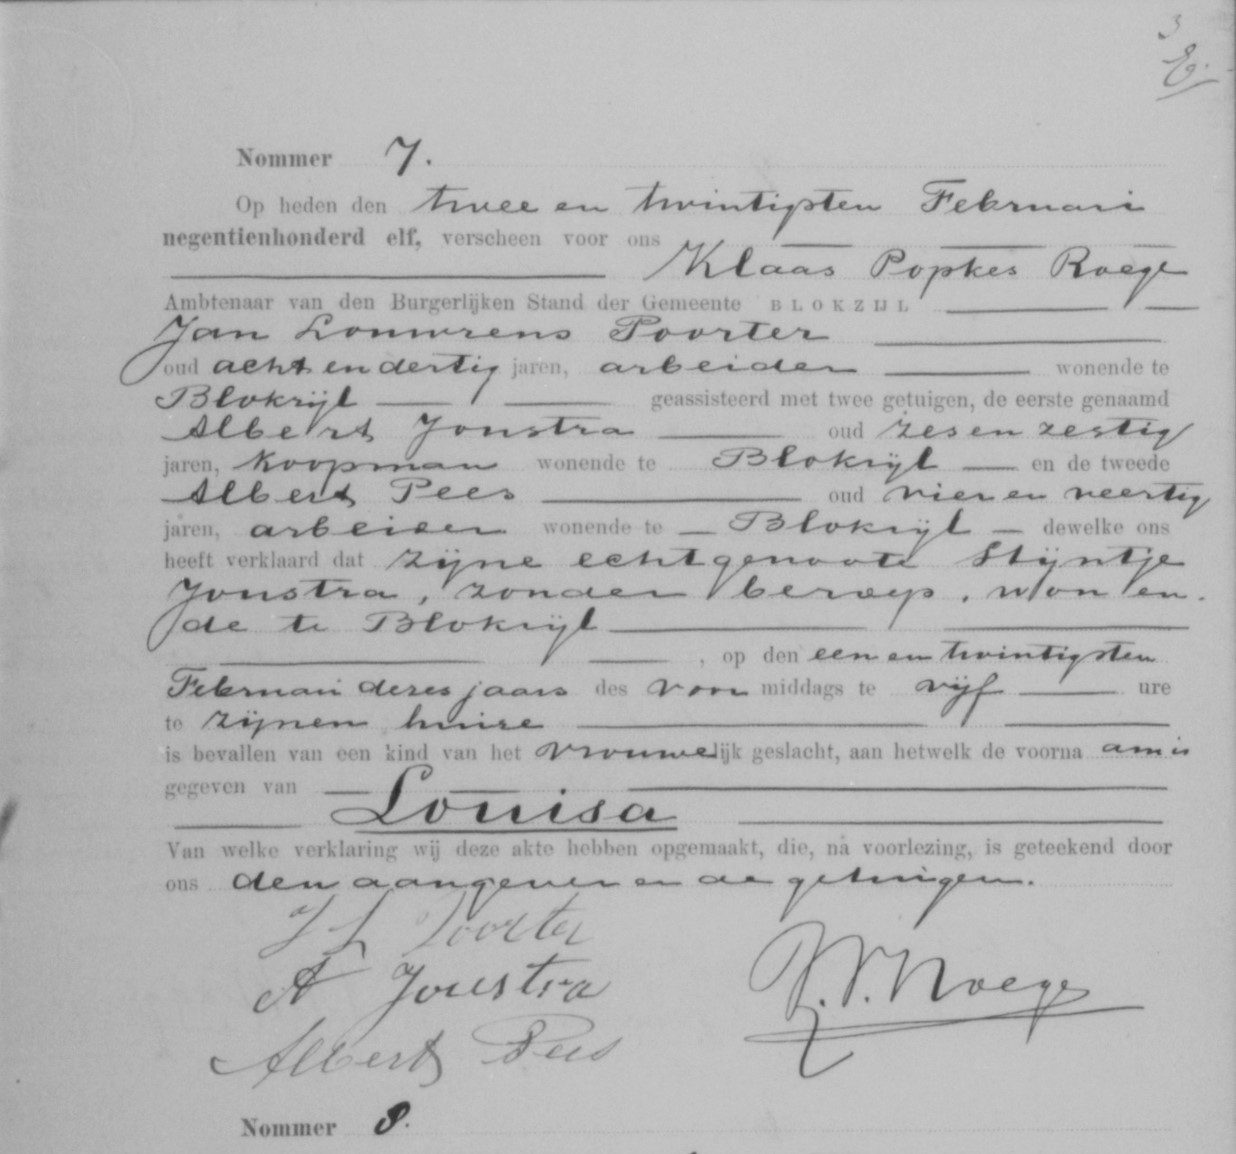 3
Nommer 7.
Op heden den twee en twintigsten Februari
negentienhonderd elf, verscheen voor ons
Klaas Popkes Roege
Ambtenaar van den Burgerlijken Stand der Gemeente BLOKZIJL
Jan Louwrens Poorter
oud acht en dertig jaren, arbeider wonende te
Blokzijl geassisteerd met twee getuigen, de eerste genaamd
Albert Jonstra oud zes en zestig
jaren, koopman wonende te Blokzijl en de tweede
Albert Pees oud vier en veertig
jaren, arbeider wonende te Blokzijl dewelke ons
heeft verklaard dat zijne echtgenoote Stijntje
Jonstra, zonder beroep, wonen-
de te Blokzijl
, op den een en twintigsten
Februari dezes jaars des voor middags te vijf ure
te zijnen huize
is bevallen van een kind van het vrouwelijk geslacht, aan hetwelk de voorna am is
gegeven van
Louisa
Van welke verklaring wij deze akte hebben opgemaakt, die, na voorlezing, is geteekend door
ons den aangever en de getuigen.
J L Poorter
A Jonstra
K. P. Roege
Albert Pees
Nommer 8.